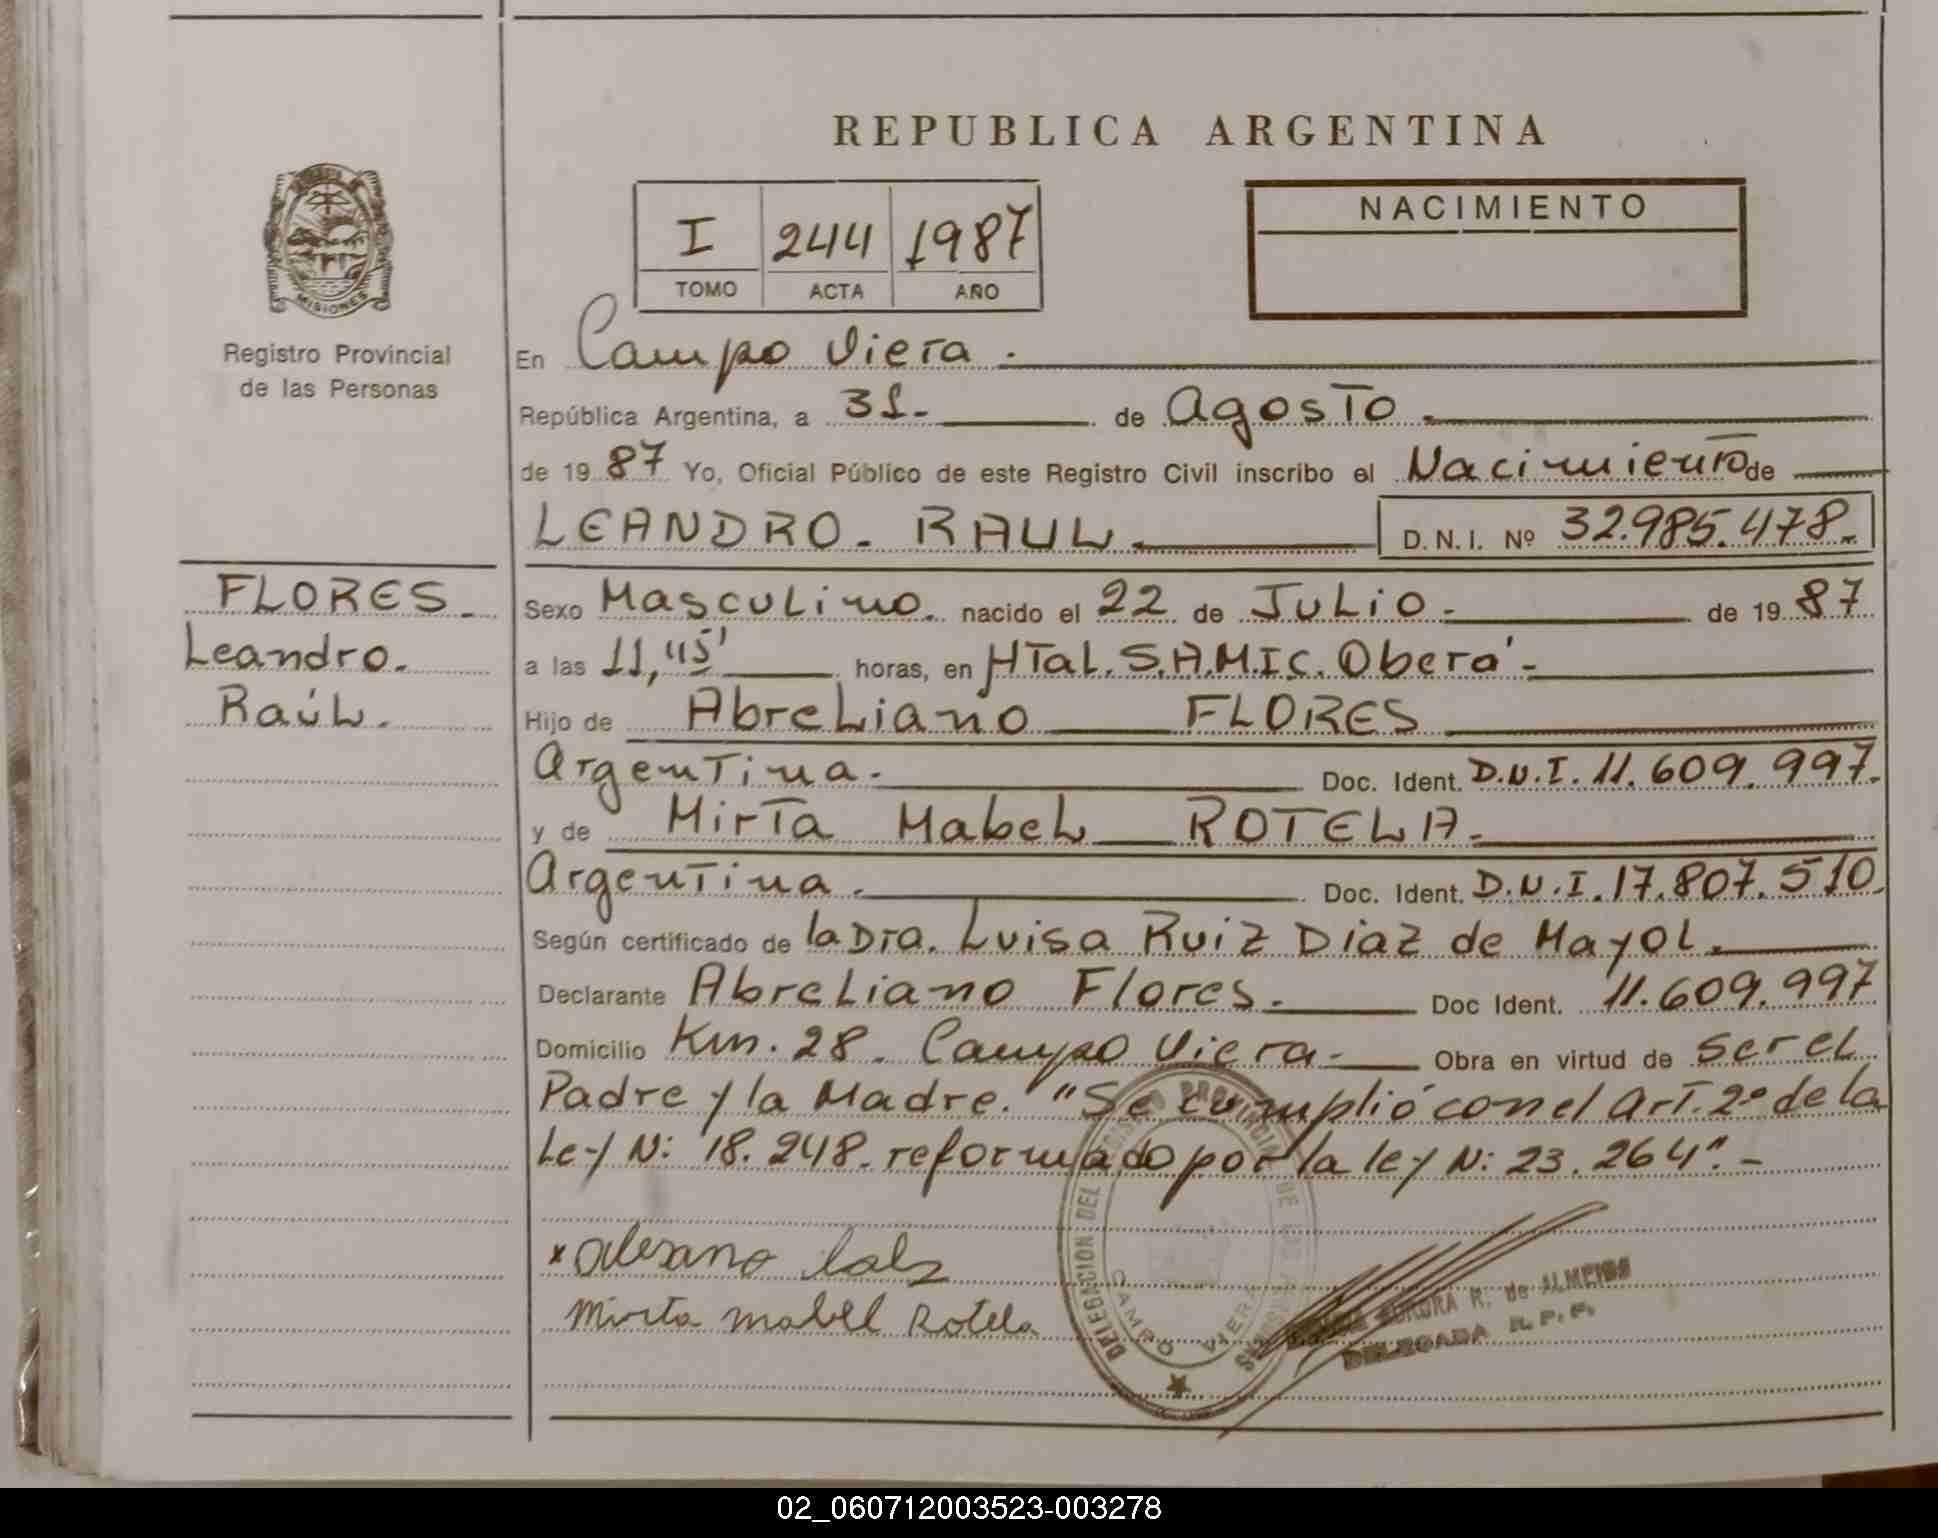 REPUBLICA ARGENTINA
MISIONES
Registro Provincial
de las Personas
I 244 1987
TOMO ACTA AÑO
NACIMIENTO
En Campo Viera.
República Argentina, a 31- de Agosto.
de 19 87 Yo, Oficial Público de este Registro Civil inscribo el Nacimiento de
LEANDRO. RAUL. D.N.I. Nº 32.985.478.-
FLORES.
Leandro.
Raúl.
Sexo Masculino. nacido el 22 de Julio. de 19 87
a las 11,45' horas, en HTal. S.A.M.I.C. Oberá.-
Hijo de Abreliano FLORES
Argentina. Doc. Ident. D.N.I. 11.609.997.
y de Mirta Mabel ROTELA.
Argentina. Doc. Ident. D.N.I. 17.807.510
Según certificado de la Dra. Luisa Ruiz Diaz de Mayol.
Declarante Abreliano Flores. Doc Ident. 11.609.997
Domicilio Km. 28. Campo Viera.- Obra en virtud de ser el
Padre y la Madre. "Se cumplió con el Art. 2º de la
Ley N: 18.248. reformado por la ley N: 23.264".-
Mirta mabel Rotela
DELEGACION DEL REGISTRO PROVINCIAL DE LAS
CAMPO VIERA
AURORA R. de ALMEIDA
DELEGADA R.P.P.
02_060712003523-003278